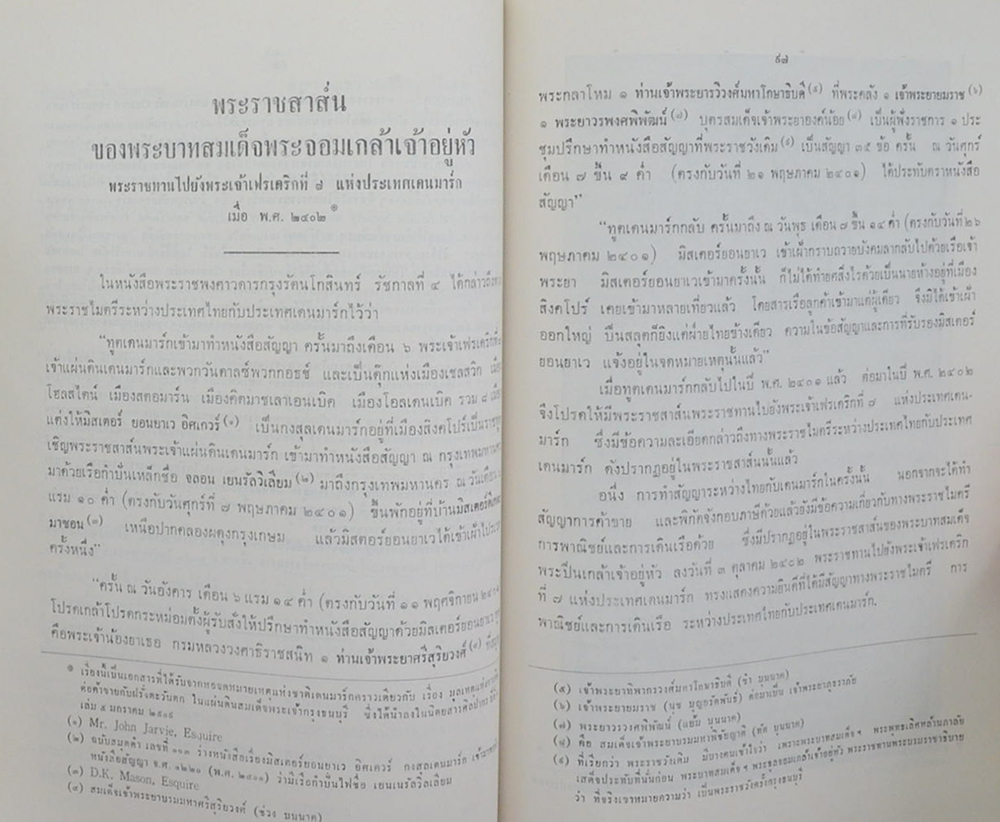 พระราชสาส์น
ของพระบาทสมเด็จพระจอมเกล้าเจ้าอยู่หัว
พระราชทานไปยังพระเจ้าเฟรเดริกที่ ๗ แห่งประเทศเดนมาร์ก
เมื่อ พ.ศ. ๒๔๐๒
ในหนังสือพระราชพงศาวดารกรุงรัตนโกสินทร์ รัชกาลที่ ๔ ได้กล่าวถึง
พระราชไมตรีระหว่างประเทศไทยกับประเทศเดนมาร์กไว้ว่า
"ทูตเดนมาร์กเข้ามาทำหนังสือสัญญา ครั้นมาถึงเดือน ๖ พระเจ้าเฟรเดริกที่
เจ้าแผ่นดินเดนมาร์กและพวกวันดาลซ์พวกกอธซ์ และเป็นดุ๊กแห่งเมืองเซลสวิก
โฮลสไตน์ เมืองสตอมาร์น เมืองดิตมาชเลาเอนเบิค เมืองโอลเดนเบิค รวม ๘
แต่งให้มิสเตอร์ ยอนยาเว อิศเกวร์ (๑) เป็นกงสุลเดนมาร์กอยู่ที่เมืองสิงคโปร์เป็น
เชิญพระราชสาส์นพระเจ้าแผ่นดินเดนมาร์ก เข้ามาทำหนังสือสัญญา ณ กรุงเทพมหานคร
มาด้วยเรือกำปั่นเหล็กชื่อ จลอน เยนรัลวิเลียม (๒) มาถึงกรุงเทพมหานคร ณ วัน
แรม ๑๐ ค่ำ (ตรงกับวันศุกร์ที่ ๗ พฤษภาคม ๒๔๐๑) ขึ้นพักอยู่ที่บ้านมิสเตอร์
มาซอน (๓) เหนือปากคลองผดุงกรุงเกษม แล้วมิสเตอร์ยอนยาเวได้เข้าเฝ้า
ครั้งหนึ่ง"
"ครั้น ณ วันอังคาร เดือน ๖ แรม ๑๔ ค่ำ (ตรงกับวันที่ ๑๑ พฤศจิกายน
โปรดเกล้าโปรดกระหม่อมตั้งผู้รับสั่งให้ปรึกษาทำหนังสือสัญญาด้วยมิสเตอร์ยอนยาเว
คือพระเจ้าน้องยาเธอ กรมหลวงวงศาธิราชสนิท ๑ ท่านเจ้าพระยาศรีสุริยวงศ์ (๔)
เรื่องนี้เป็นเอกสารที่ได้รับจากหอจดหมายเหตุแห่งชาติเดนมาร์กคราวเดียวกับ เรื่อง มูลเหตุแห่งการ
ต่อค้าขายกับฝรั่งตะวันตก ในแผ่นดินสมเด็จพระเจ้ากรุงธนบุรี ซึ่งได้นำลงในนิตยสารศิลปากร
เล่ม ๕ มกราคม
(๑) Mr. John Jarvie, Esquire
(๒) ฉบับสมุดดำ เลขที่ ๑๑๓ ร่างหนังสือเรื่องมิสเตอร์ยอนยาเว อิศเควร์ กงสุลเดนมาร์ก
หนังสือสัญญา จ.ศ. ๑๒๒๐ (พ.ศ. ๒๔๐๑) ว่ามีเรือกำปั่นไฟชื่อ เยนเนรัลวิลเลียม
(๓) D.K. Mason, Esquire
(๔) สมเด็จเจ้าพระยาบรมมหาศรีสุริยวงศ์ (ช่วง บุนนาค)
๙๗
พระกลาโหม ๑ ท่านเจ้าพระยารวิวงศ์มหาโกษาธิบดี (๕) ที่พระคลัง ๑ เจ้าพระยายมราช (๖)
๑ พระยาวรพงศพิพัฒน์ (๗) บุตรสมเด็จเจ้าพระยาองค์น้อย (๘) เป็นผู้ฟังราชการ ๑ ประ
ชุมปรึกษาทำหนังสือสัญญาที่พระราชวังเดิม (๙) เป็นสัญญา ๓๕ ข้อ ครั้น ณ วันศุกร์
เดือน ๗ ขึ้น ๙ ค่ำ (ตรงกับวันที่ ๒๑ พฤษภาคม ๒๔๐๑) ได้ประทับตราหนังสือ
สัญญา"
"ทูตเดนมาร์กกลับ ครั้นมาถึง ณ วันพุธ เดือน ๗ ขึ้น ๑๔ ค่ำ (ตรงกับวันที่ ๒๖
พฤษภาคม ๒๔๐๑) มิสเตอร์ยอนยาเว เข้าเฝ้ากราบถวายบังคมลากลับไปด้วยเรือเจ้า
พระยา มิสเตอร์ยอนยาเวเข้ามาครั้งนั้น ก็ไม่ได้ทำยศสิ่งไรด้วยเป็นนายห้างอยู่ที่เมือง
สิงคโปร์ เคยเข้ามาหลายเที่ยวแล้ว โดยสารเรือลูกค้าเข้ามาแต่ผู้เดียว จึงมิได้เข้าเฝ้า
ออกใหญ่ ปืนสลุตก็ยิงแต่ฝ่ายไทยข้างเดียว ความในข้อสัญญาและการที่รับรองมิสเตอร์
ยอนยาเว แจ้งอยู่ในจดหมายเหตุนั้นแล้ว"
เมื่อทูตเดนมาร์กกลับไปในปี พ.ศ. ๒๔๐๑ แล้ว ต่อมาในปี พ.ศ. ๒๔๐๒
จึงโปรดให้มีพระราชสาส์นพระราชทานไปยังพระเจ้าเฟรเดริกที่ ๗ แห่งประเทศเดน-
มาร์ก ซึ่งมีข้อความละเอียดกล่าวถึงทางพระราชไมตรีระหว่างประเทศไทยกับประเทศ
เดนมาร์ก ดังปรากฏอยู่ในพระราชสาส์นนั้นแล้ว
อนึ่ง การทำสัญญาระหว่างไทยกับเดนมาร์กในครั้งนั้น นอกจากจะได้ทำ
สัญญาการค้าขาย และพิกัดจังกอบภาษีด้วยแล้วยังมีข้อความเกี่ยวกับทางพระราชไมตรี
การพาณิชย์และการเดินเรือด้วย ซึ่งมีปรากฏอยู่ในพระราชสาส์นของพระบาทสมเด็จ
พระปิ่นเกล้าเจ้าอยู่หัว ลงวันที่ ๓ ตุลาคม ๒๔๐๒ พระราชทานไปยังพระเจ้าเฟรเดริก
ที่ ๗ แห่งประเทศเดนมาร์ก ทรงแสดงความยินดีที่ได้มีสัญญาทางพระราชไมตรี การ
พาณิชย์และการเดินเรือ ระหว่างประเทศไทยกับประเทศเดนมาร์ก.
(๕) เจ้าพระยาทิพากรวงศ์มหาโกษาธิบดี (ขำ บุนนาค)
(๖) เจ้าพระยายมราช (นุช บุญยรัตพันธุ์) ต่อมาเป็น เจ้าพระยาภูธราภัย
(๗) พระยาวรวงศ์พิพัฒน์ (แย้ม บุนนาค)
(๘) คือ สมเด็จเจ้าพระยาบรมมหาพิชัยญาติ (ทัต บุนนาค)
(๙) ที่เรียกว่า พระราชวังเดิม มีบางคนเข้าใจว่า เพราะพระบาทสมเด็จฯ พระพุทธเลิศหล้านภาลัย
เสด็จประทับที่นั่นก่อน พระบาทสมเด็จฯ พระจอมเกล้าเจ้าอยู่หัว พระราชทานพระบรมราชาธิบาย
ว่า ที่จริงเขาหมายความว่า เป็นพระราชวังครั้งกรุงธนบุรี